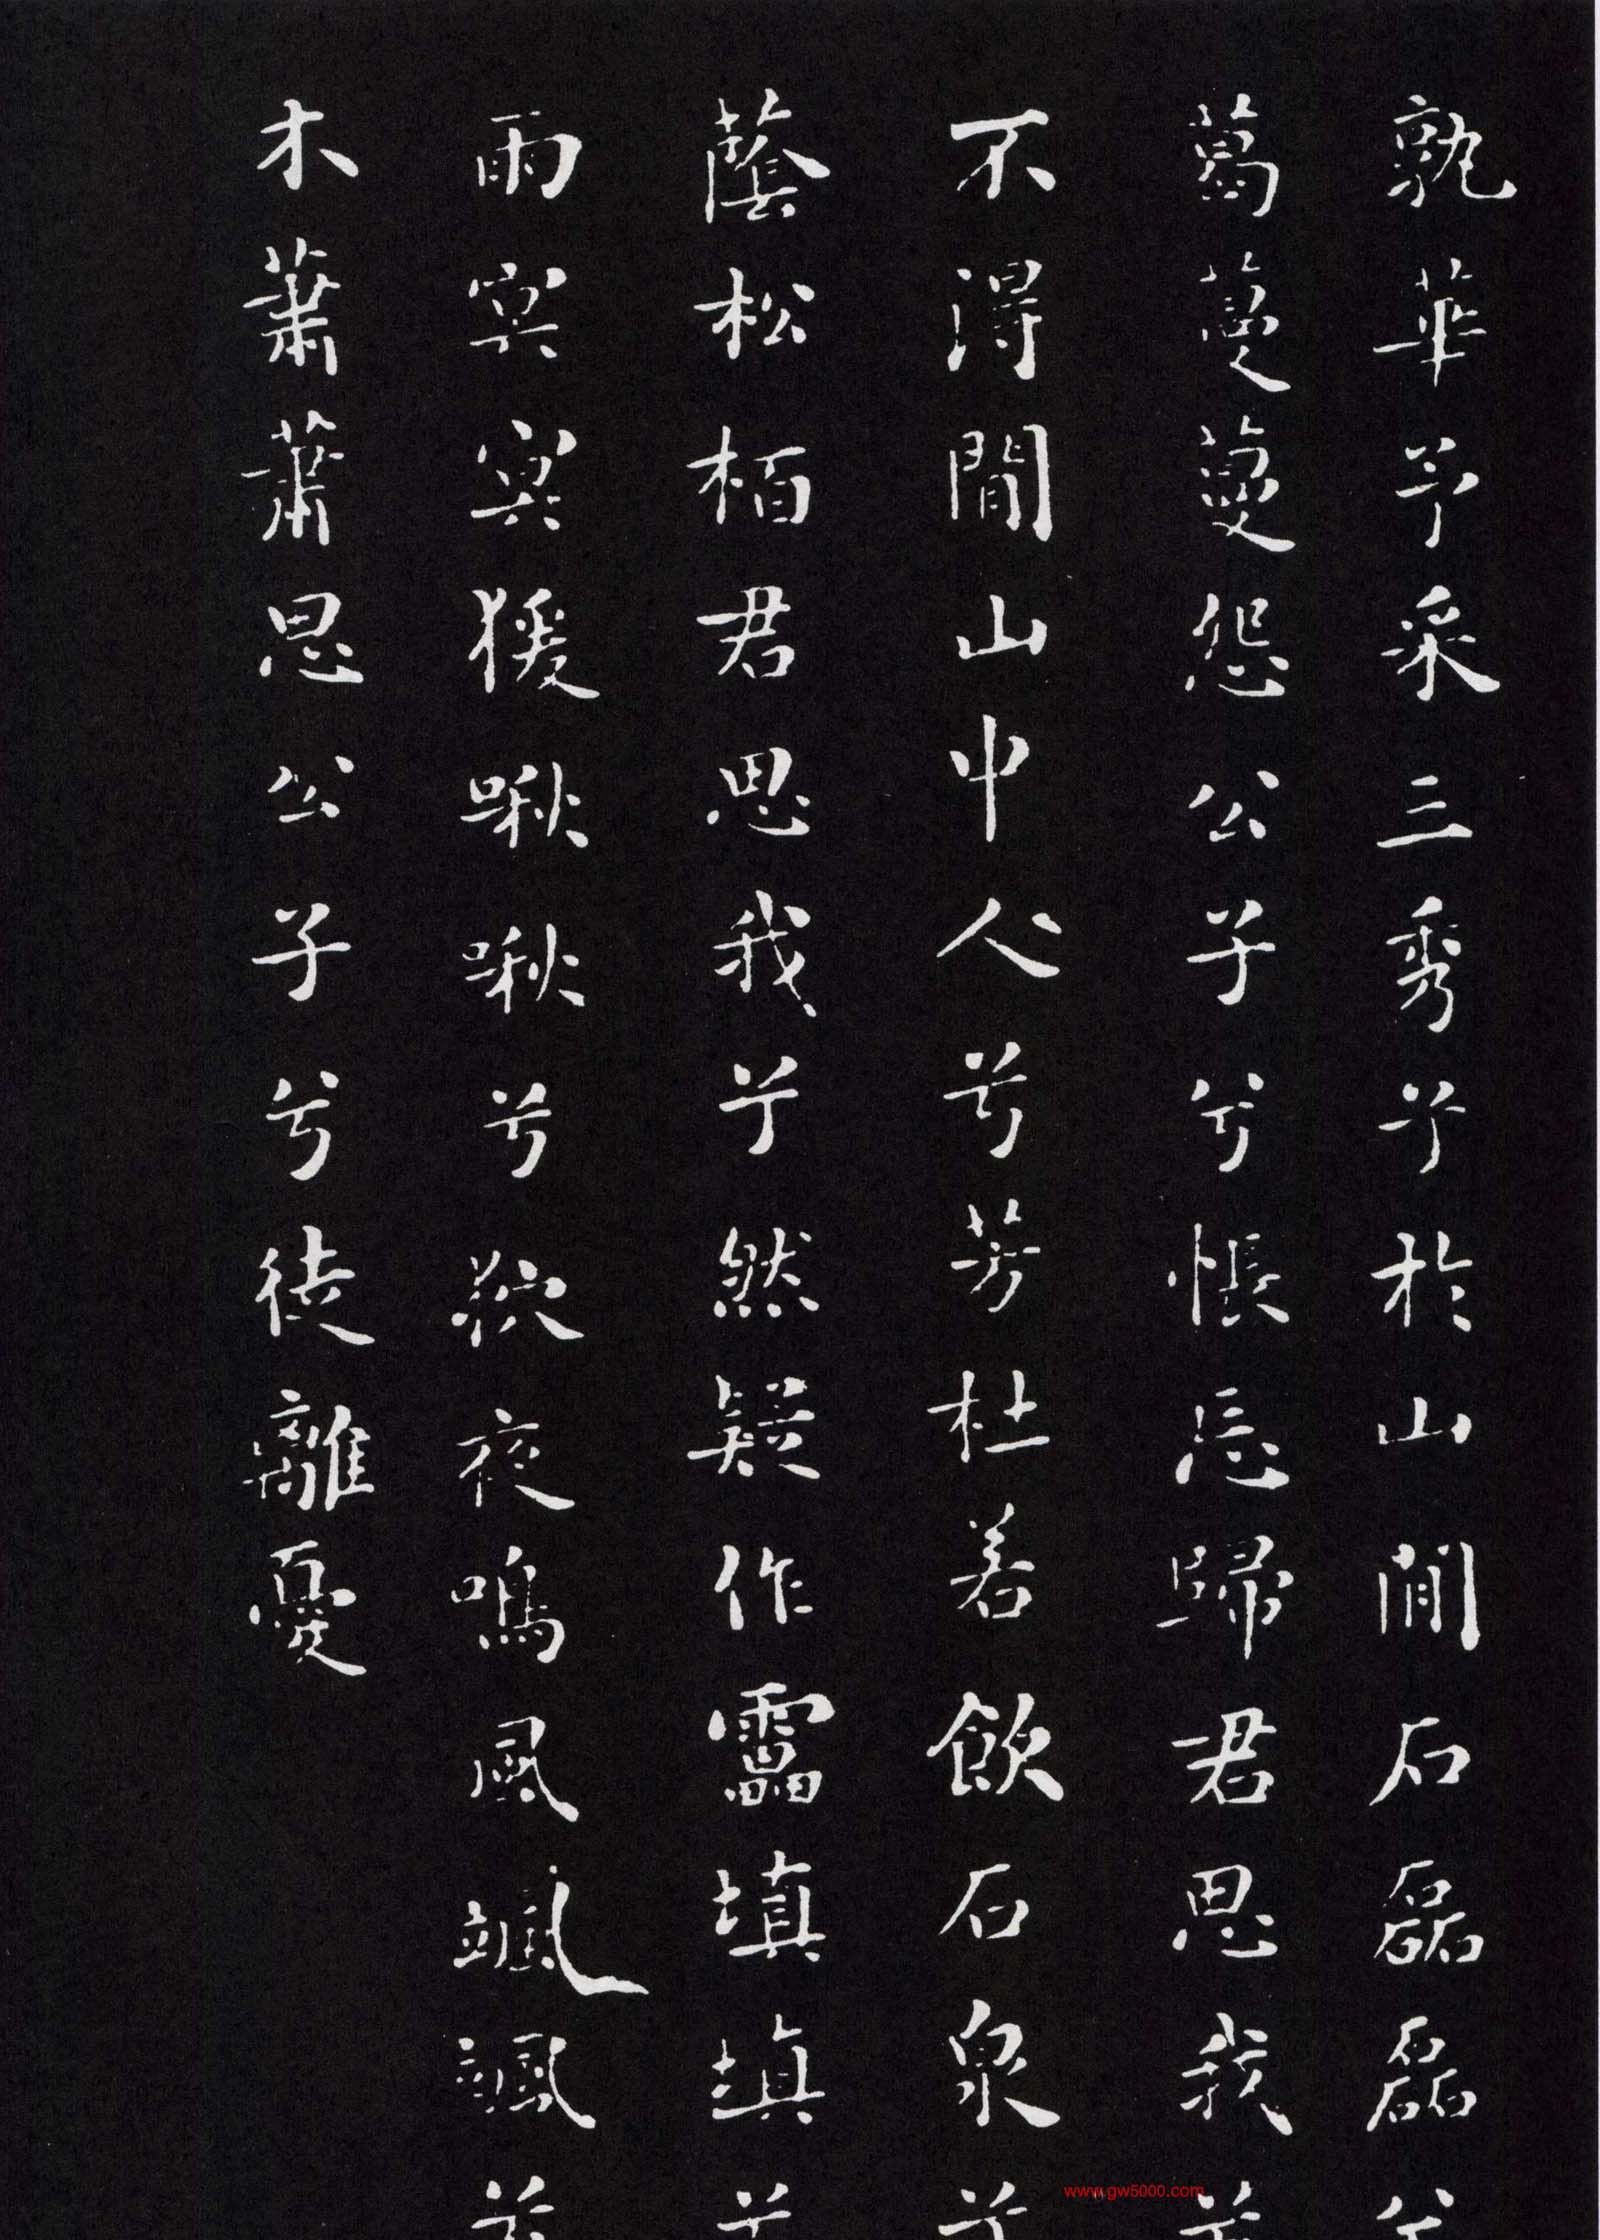 孰華兮采三秀兮於山間石磊磊兮
葛蔓蔓怨公子兮悵忘歸君思我兮
不得閒山中人兮芳杜若飲石泉兮
蔭松栢君思我兮然疑作靁填填兮
雨冥冥猨啾啾兮狖夜鳴風颯颯兮
木蕭蕭思公子兮徒離憂
www.gw5000.com